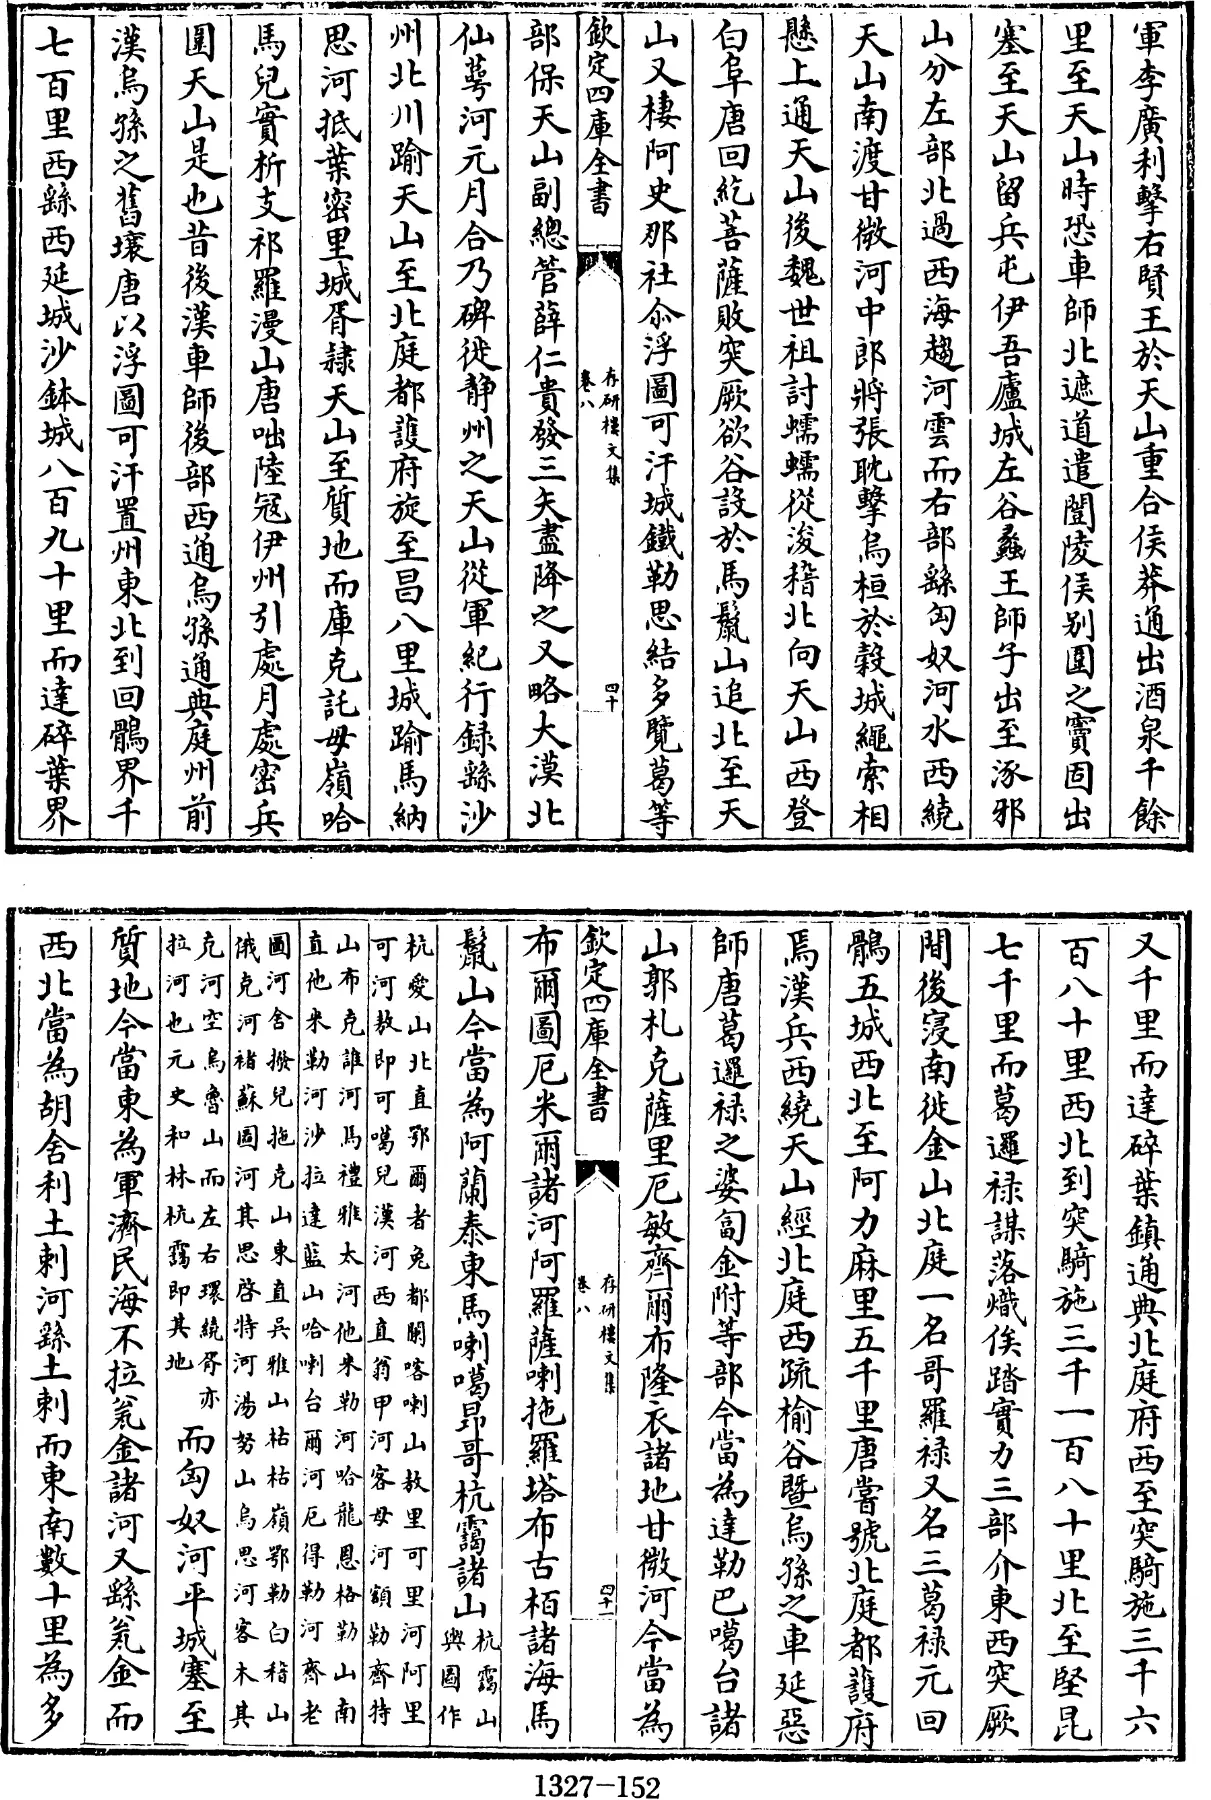 軍李廣利擊右賢王於天山重合侯莽通出酒泉千餘
里至天山時恐車師北遮道遣闓陵侯别圍之竇固出
塞至天山留兵屯伊吾廬城左谷蠡王師子出至涿邪
山分左部北過西海趨河雲而右部繇匈奴河水西繞
天山南渡甘微河中郎將張耽擊烏桓於穀城繩索相
懸上通天山後魏世祖討蠕蠕從浚稽北向天山西登
白阜唐回紇菩薩敗突厥欲谷設於馬鬛山追北至天
山又棲阿史那社尒浮圖可汗城鐵勒思結多覽葛等
欽定四庫全書
存研樓文集
卷八
四十
部保天山副總管薛仁貴發三矢盡降之又略大漠北
仙萼河元月合乃碑徙静州之天山從軍紀行録繇沙
州北川踰天山至北庭都護府旋至昌八里城踰馬納
思河抵葉密里城胥隸天山至質地而庫克託毋嶺哈
馬兒實析支祁羅漫山唐咄陸冦伊州引處月處密兵
圍天山是也昔後漢車師後部西通烏孫通典庭州前
漢烏孫之舊壤唐以浮圖可汗置州東北到回鶻界千
七百里西繇西延城沙鉢城八百九十里而達碎葉界
又千里而達碎葉鎮通典北庭府西至突騎施三千六
百八十里西北到突騎施三千一百八十里北至堅昆
七千里而葛邏禄謀落熾俟踏實力三部介東西突厥
間後寖南徙金山北庭一名哥羅禄又名三葛禄元回
鶻五城西北至阿力麻里五千里唐嘗號北庭都護府
焉漢兵西繞天山經北庭西疏榆谷暨烏孫之車延惡
師唐葛邏禄之婆匐金附等部今當為達勒巴噶台諸
山郭札克薩里厄敏齊爾布隆衣諸地甘微河今當為
欽定四庫全書
存研樓文集
卷八
四十一
布爾圖厄米爾諸河阿羅薩喇拖羅塔布古栢諸海馬
鬛山今當為阿蘭泰東馬喇噶昂哥杭靄諸山杭靄山輿圖作
杭愛山北直鄂爾者兔都闌喀喇山敖里可里河阿里
可河敖即可噶兒漢河西直翁甲河客母河額勒齊特
山布克誰河馬禮雅太河他米勒河哈龍恩格勒山南
直他米勒河沙拉達藍山哈喇台爾河厄得勒河齊老
圖河舍撥兒拖克山東直吳雅山枯枯嶺鄂勒白稽山
俄克河禇蘇圖河其思啓特河湯努山烏思河客木其
克河空烏魯山而左右環繞胥亦
拉河也元史和林杭靄即其地
而匈奴河平城塞至
質地今當東為軍濟民海不拉㐬金諸河又繇㐬金而
西北當為胡舍利土剌河繇土剌而東南數十里為多
1327-152